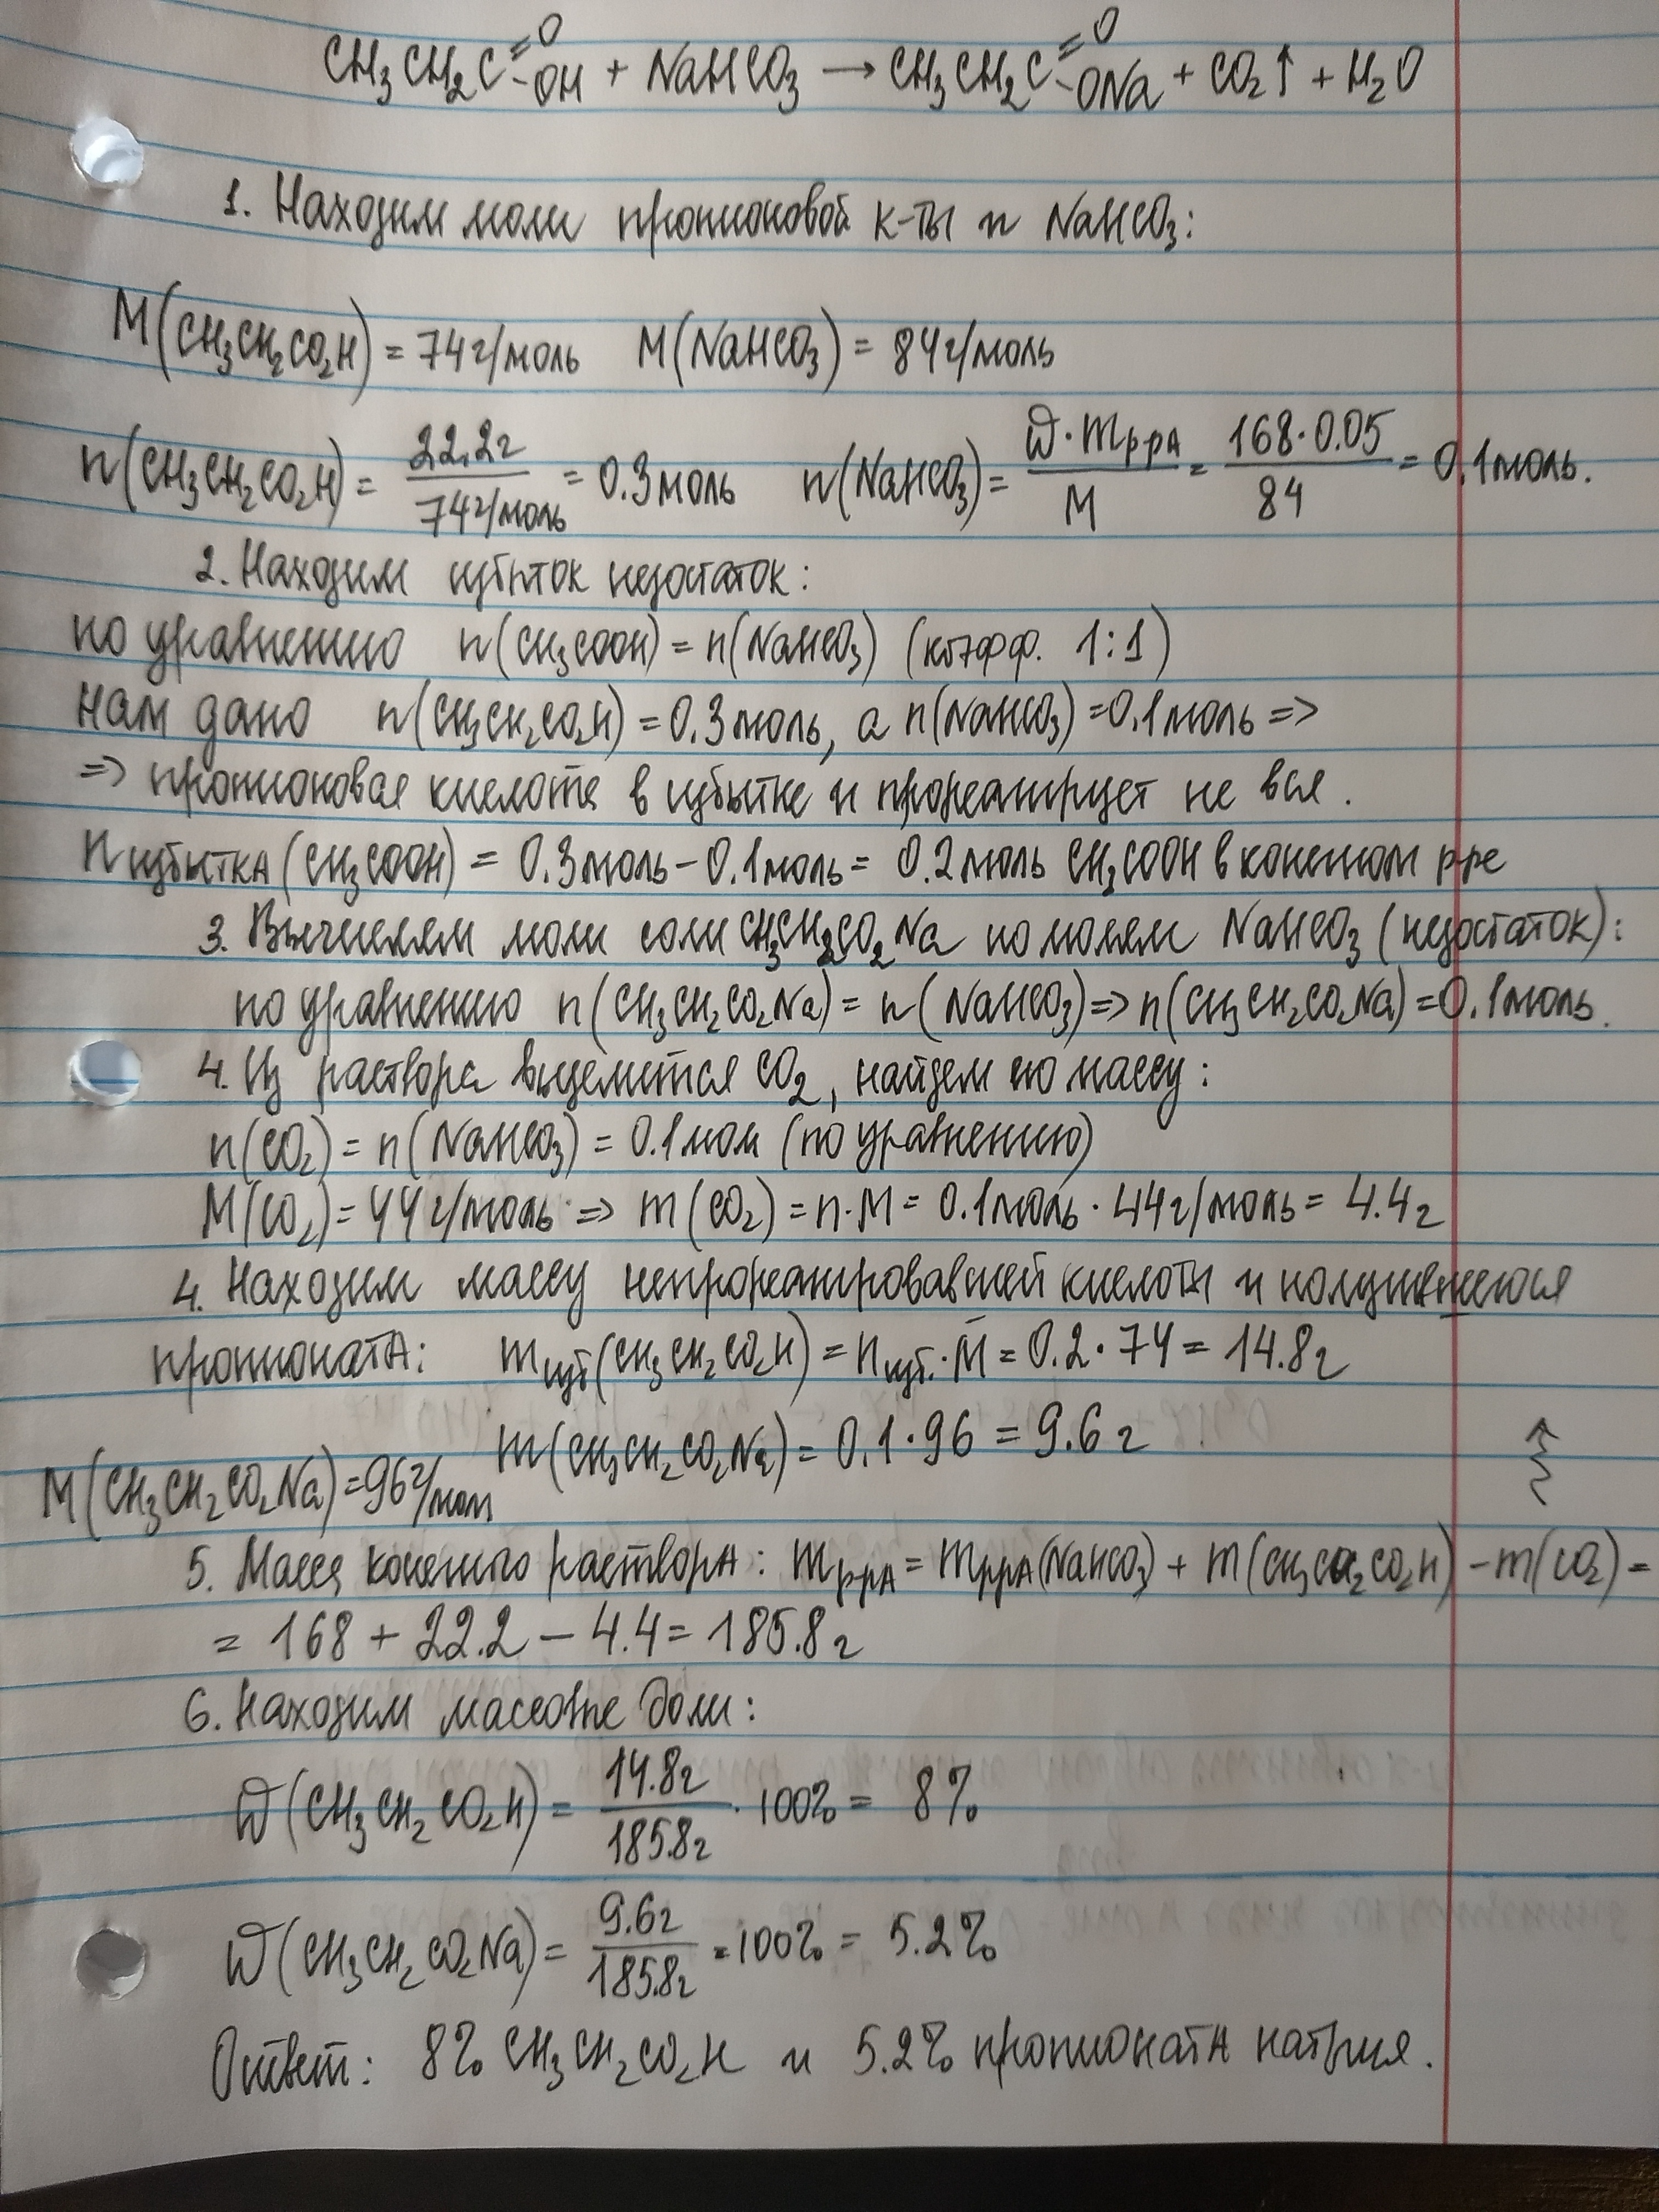 CH₃CH₂C=O-OH + NaHCO₃ → CH₃CH₂C=O-ONa + CO₂↑ + H₂O
1. Находим моли пропионовой к-ты и NaHCO₃:
M(CH₃CH₂CO₂H) = 74г/моль M(NaHCO₃) = 84г/моль
n(CH₃CH₂CO₂H) = 22.2г/74г/моль = 0.3моль n(NaHCO₃) = W·mрра/M = 168·0.05/84 = 0.1моль.
2. Находим избыток недостаток:
по уравнению n(CH₃COOH) = n(NaHCO₃) (коэфф. 1:1)
нам дано n(CH₃CH₂CO₂H) = 0.3моль, а n(NaHCO₃) = 0.1моль =>
=> пропионовая кислота в избытке и прореагирует не вся.
nизбытка(CH₃COOH) = 0.3моль - 0.1моль = 0.2моль CH₃COOH в конечном рре
3. Вычисляем моли соли CH₃CH₂CO₂Na по молям NaHCO₃ (недостаток):
по уравнению n(CH₃CH₂CO₂Na) = n(NaHCO₃) => n(CH₃CH₂CO₂Na) = 0.1моль.
4. Из раствора выделится CO₂, найдем его массу:
n(CO₂) = n(NaHCO₃) = 0.1мол (по уравнению)
M(CO₂) = 44г/моль => m(CO₂) = n·M = 0.1моль · 44г/моль = 4.4г
4. Находим массу непрореагировавшей кислоты и получившегося
пропионата: mизб(CH₃CH₂CO₂H) = nизб.·M = 0.2·74 = 14.8г
m(CH₃CH₂CO₂Na) = 0.1·96 = 9.6г
M(CH₃CH₂CO₂Na) = 96г/мол
5. Масса конечного раствора: mрра = mрра(NaHCO₃) + m(CH₃CH₂CO₂H) - m(CO₂) =
= 168 + 22.2 - 4.4 = 185.8г
6. Находим массовые доли:
W(CH₃CH₂CO₂H) = 14.8г/185.8г · 100% = 8%
W(CH₃CH₂CO₂Na) = 9.6г/185.8г · 100% = 5.2%
Ответ: 8% CH₃CH₂CO₂H и 5.2% пропионата натрия.